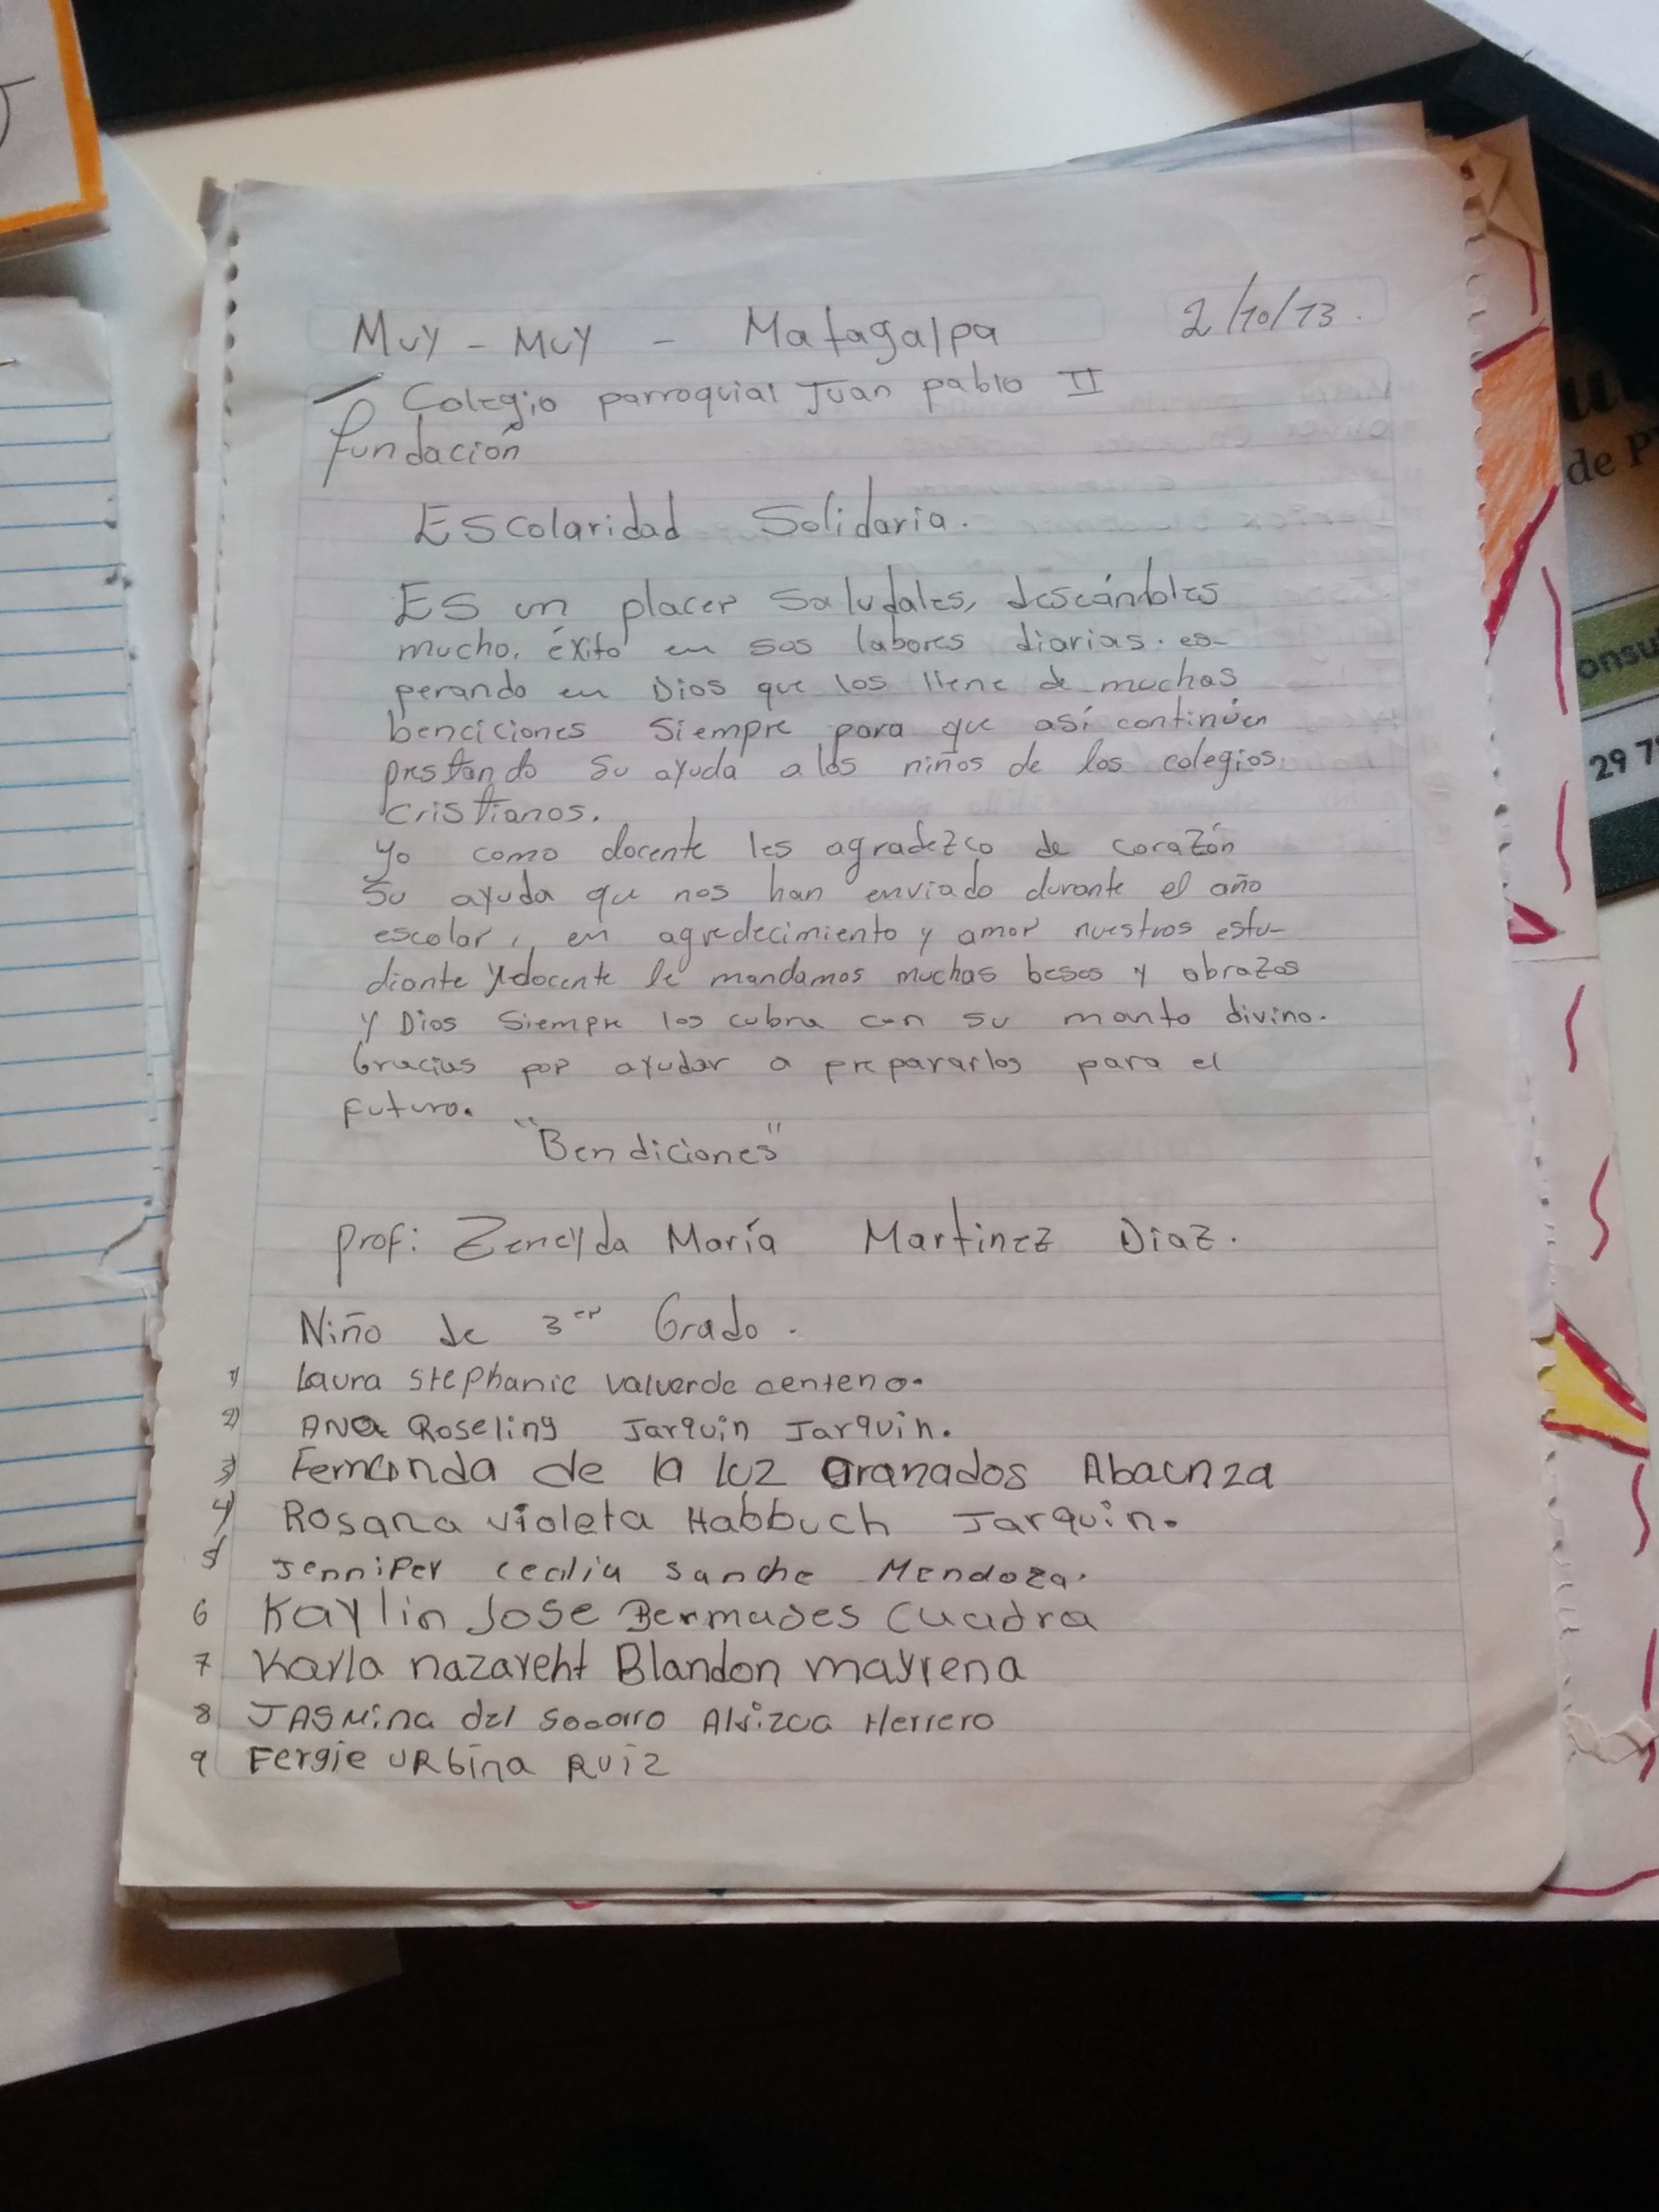 Muy - Muy - Matagalpa 2/10/13.
Colegio parroquial Juan pablo II
fundación
Escolaridad Solidaria.
Es un placer Saludales, deseándoles
mucho. éxito en sus labores diarias. es-
perando en Dios que los llene de muchas
benciciones siempre para que así continúen
prestando su ayuda a los niños de los colegios
cristianos.
yo como docente les agradezco de corazón
su ayuda que nos han enviado durante el año
escolar, en agredecimiento y amor nuestros estu-
diante y docente le mandamos muchas besos y abrazos
y Dios siempre los cubra con su manto divino.
Gracias por ayudar a prepararlos para el
futuro.
"Bendiciones"
prof: Zeneyda María Martinez Diaz.
Niño de 3er Grado.
1) Laura stephanie valverde centeno.
2) ANA Roseling Jarquin Jarquin.
3) Fernanda de la luz Granados Abaunza
4) Rosana violeta Habbuch Jarquin.
5) Jennifer cecilia sanche Mendoza.
6 Kaylin Jose Bermudes Cuadra
7 Karla nazareht Blandon mayrena
8 JASMina del socorro Herrero
9 Fergie URbina RUiz
de P
onsu
29 7